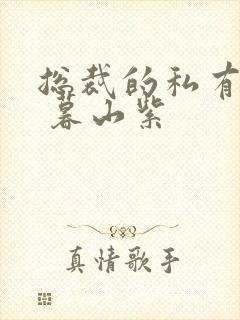 总裁的私有
暮山紫
真情歌手